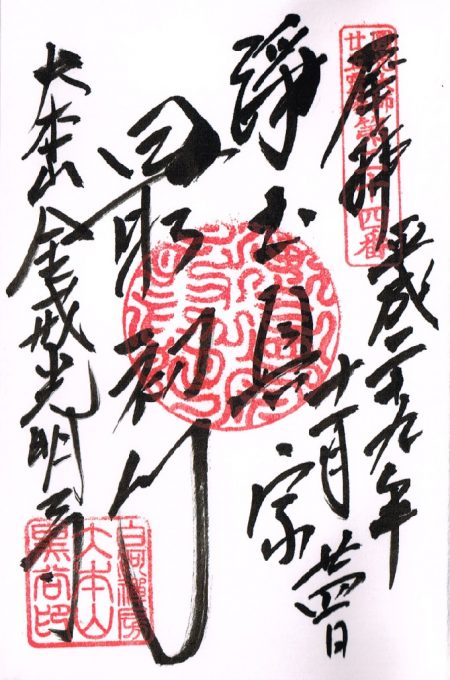 奉拝
平成二十九年
十一月廿四日
浄土真宗
最初門
大本山 金戒光明寺
圓光大師
廿五霊場第廿四番
白河禅房
大本山
黒谷印